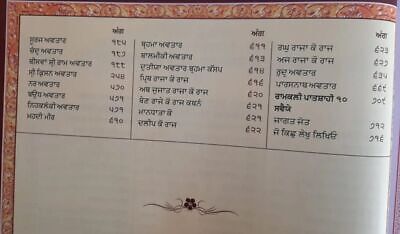 ਅੰਗ
ਸੂਰਜ ਅਵਤਾਰ ੧੮੫
ਚੰਦ੍ਰ ਅਵਤਾਰ ੧੮੭
ਬੀਸਵਾਂ ਸ੍ਰੀ ਰਾਮ ਅਵਤਾਰ ੧੮੮
ਸ੍ਰੀ ਕ੍ਰਿਸਨ ਅਵਤਾਰ ੨੫੪
ਨਰ ਅਵਤਾਰ ੫੭੦
ਬਊਧ ਅਵਤਾਰ ੫੭੧
ਨਿਹਕਲੰਕੀ ਅਵਤਾਰ ੫੭੧
ਮਹਦੀ ਮੀਰ ੬੧੦
ਅੰਗ
ਬ੍ਰਹਮਾ ਅਵਤਾਰ ੬੧੧
ਬਾਲਮੀਕੀ ਅਵਤਾਰ ੬੧੩
ਦੁਤੀਯਾ ਅਵਤਾਰ ਬ੍ਰਹਮਾ ਕੱਸਪ ੬੧੪
ਪ੍ਰਿਥੁ ਰਾਜਾ ਕੋ ਰਾਜ ੬੧੫
ਅਥ ਦੁਜਾਤ ਰਾਜਾ ਕੋ ਰਾਜ ੬੨੦
ਬੇਣ ਰਾਜੇ ਕੋ ਰਾਜ ਕਥਨੰ ੬੨੧
ਮਾਨਧਾਤਾ ਕੋ ੬੨੧
ਦਲੀਪ ਕੋ ਰਾਜ ੬੨੨
ਅੰਗ
ਰਘੁ ਰਾਜਾ ਕੋ ਰਾਜ ੬੨੩
ਅਜ ਰਾਜਾ ਕੋ ਰਾਜ ੬੨੪
ਰੁਦ੍ਰ ਅਵਤਾਰ ੬੩੫
ਪਾਰਸਨਾਥ ਅਵਤਾਰ ੬੬੯
ਰਾਮਕਲੀ ਪਾਤਸ਼ਾਹੀ ੧੦ ੭੦੯
ਸਵੈਯੇ
ਜਾਗਤ ਜੋਤ ੭੧੨
ਜੋ ਕਿਛੁ ਲੇਖੁ ਲਿਖਿਓ ੭੧੬